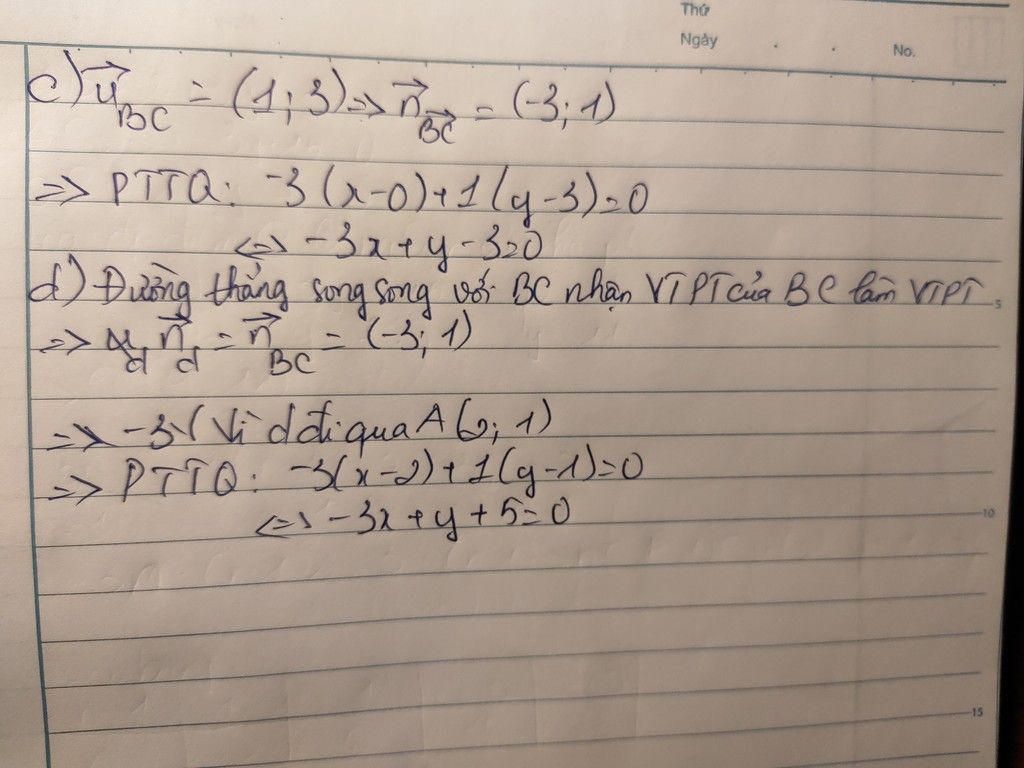 Thứ
Ngày . . No.
c) u⃗_BC = (1; 3) => n⃗_BC = (-3; 1)
=> PTTQ: -3(x-0)+1(y-3)=0
<=> -3x+y-3=0
d) Đường thẳng song song với BC nhận VTPT của BC làm VTPT
5
=> n⃗_d = n⃗_BC = (-3; 1)
=> Vì d đi qua A(2; 1)
=> PTTQ: -3(x-2)+1(y-1)=0
<=> -3x+y+5=0
10
15